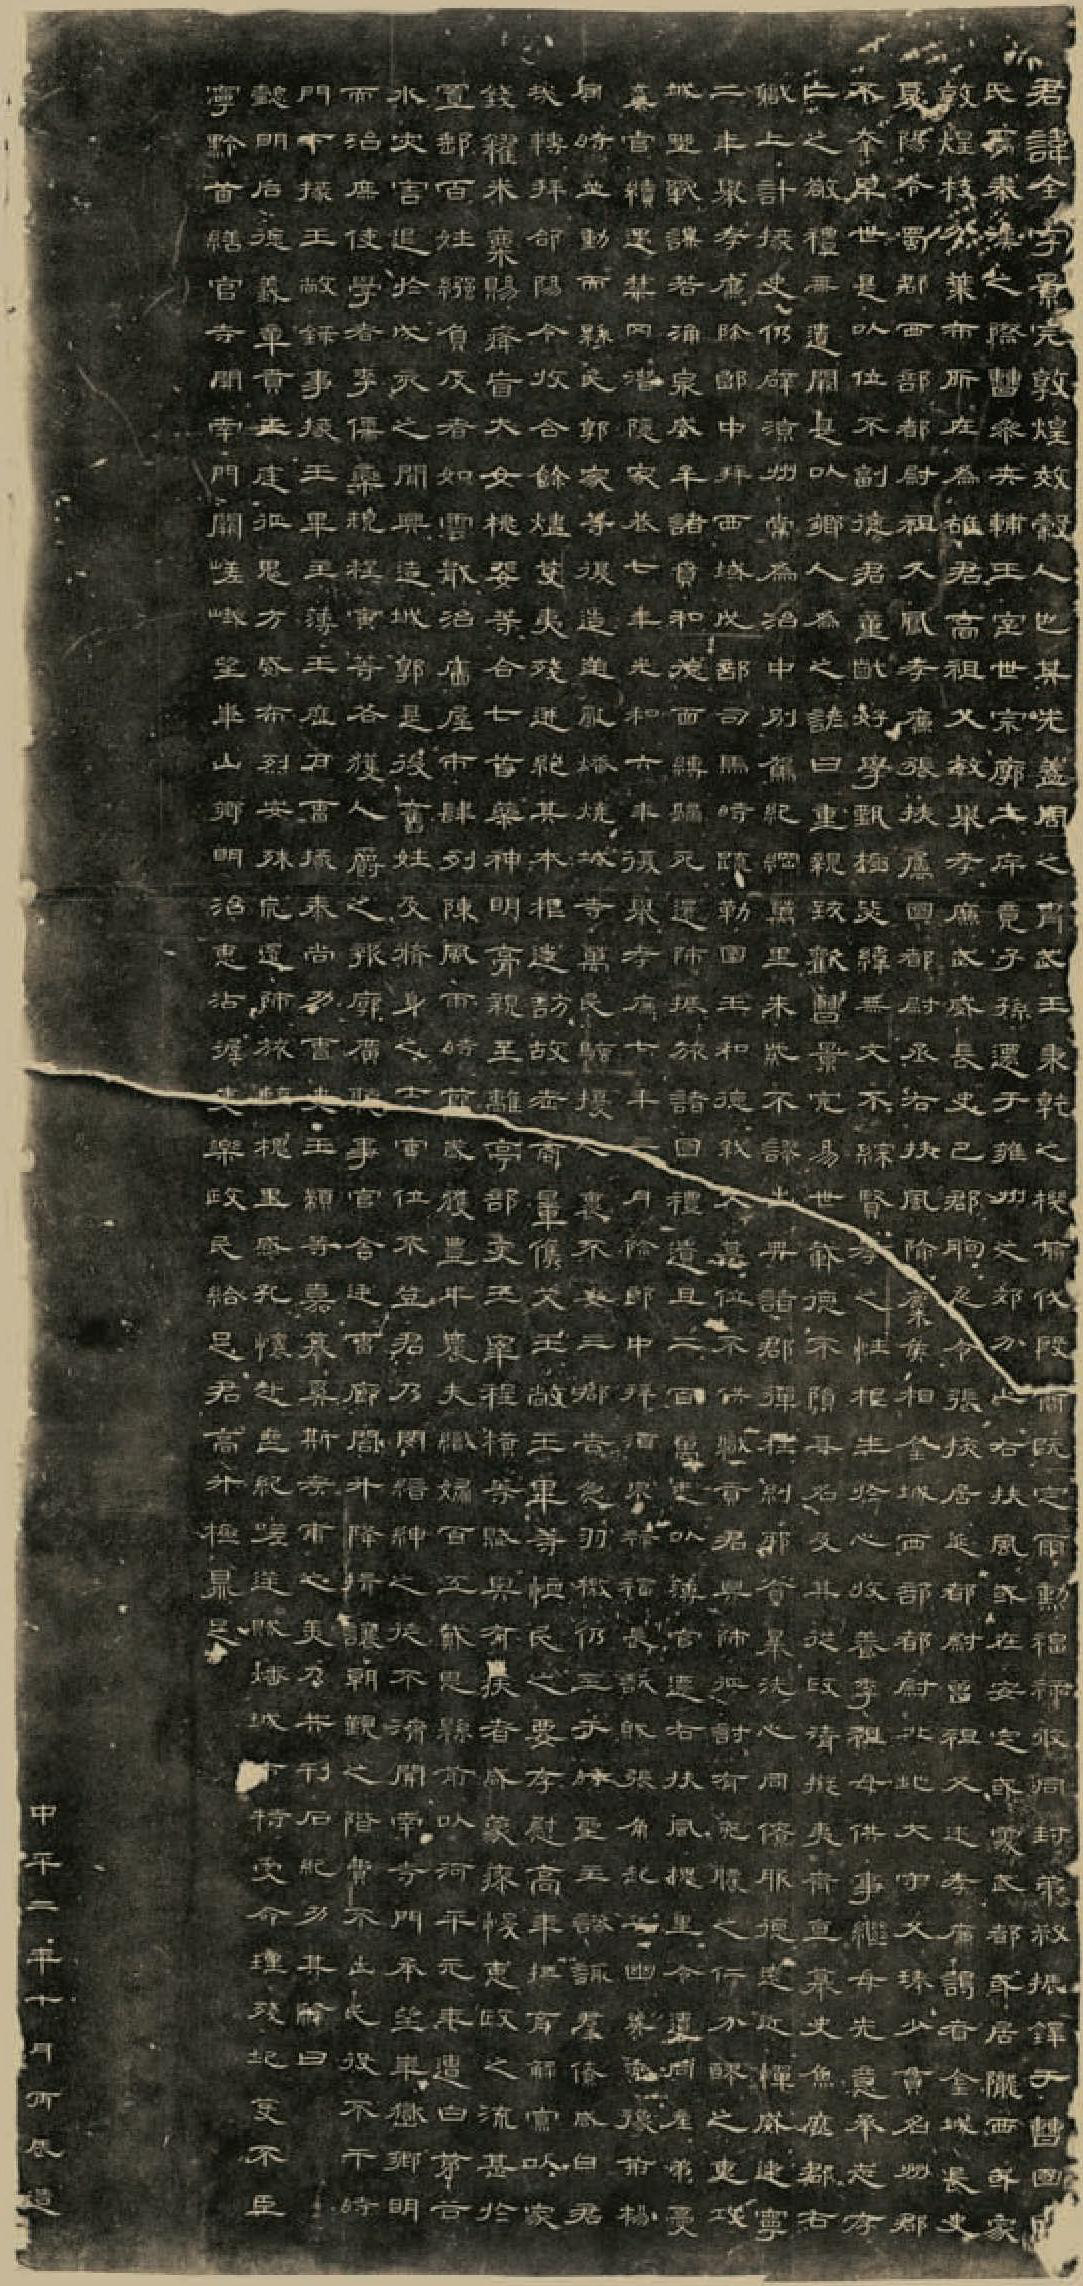 君諱全字景完敦煌效穀人也其先蓋周之胄武王秉乾之機翦伐殷商既定爾勳福祿攸同封弟叔振鐸于曹國因
氏焉秦漢之際曹參夾輔王室世宗廓土斥竟子孫遷于雍州之郊分止右扶風或在安定或處武都或居隴西或家
敦煌枝分葉布所在為雄君高祖父敏舉孝廉武威長史巴郡朐忍令張掖居延都尉曾祖父述孝廉謁者金城長史
夏陽令蜀郡西部都尉祖父鳳孝廉張掖屬國都尉丞右扶風隃麋侯相金城西部都尉北地大守父琫少貫名州郡
不幸早世是以位不副德君童齔好學甄極毖緯無文不綜賢孝之性根生於心收養季祖母供事繼母先意承志存
亡之敬禮無遺闕是以鄉人為之諺曰重親致歡曹景完易世載德不隕其名及其從政清擬夷齊直慕史魚歷郡右
職上計掾史仍辟涼州常為治中別駕紀綱萬里朱紫不謬出典諸郡彈枉糾邪貪暴洗心同僚服德遠近憚威建寧
二年舉孝廉除郎中拜西域戊部司馬時疏勒國王和德弒父篡位不供職貢君興師征討有兗膿之仁分醪之惠攻
城野戰謀若涌泉威牟諸賁和德面縛歸死還師振旅諸國禮遺且二百萬悉以薄官遷右扶風槐里令遭同產弟憂
棄官續遇禁罔潛隱家巷七年光和六年復舉孝廉七年三月除郎中拜酒泉祿福長訞賊張角起兵幽冀兗豫荊楊
同時並動而縣民郭家等復造逆亂燔燒城寺萬民騷擾人裹不安三郡告急羽檄仍至于時聖主諮諏群僚咸曰君
哉轉拜郃陽令收合餘燼芟夷殘迸絕其本根遂訪故老商量儁艾王敞王畢等恤民之要存慰高年撫育鰥寡以家
錢糴米粟賜癃盲大女桃婓等合七首藥神明膏親至離亭部吏王宰程橫等賦與有疾者咸蒙瘳悛惠政之流甚於
置郵百姓繈負反者如雲戢治廧屋市肆列陳風雨時節歲獲豐年農夫織婦百工戴恩縣前以河平元年遭白茅谷
水災害退於戊亥之間興造城郭是後舊姓及脩身之士官位不登君乃閔縉紳之徒不濟開南寺門承望華嶽鄉明
而治庶使學者李儒欒規程寅等各獲人爵之報廓廣聽事官舍廷曹廊閤升降揖讓朝覲之階費不出民役不干時
門下掾王敞錄事掾王畢主薄王歷戶曹掾秦尚功曹史王顓等嘉慕奚斯考甫之美乃共刊石紀功其辭曰
懿明后德義章貢王庭征鬼方威布烈安殊荒還師旅臨槐里感孔懷赴喪紀嗟逆賊燔城市特受命理殘圮芟不臣
寧黔首繕官寺開南門闕嵯峨望華山鄉明治惠沾渥吏樂政民給足君高升極鼎足
中平二年十月丙辰造